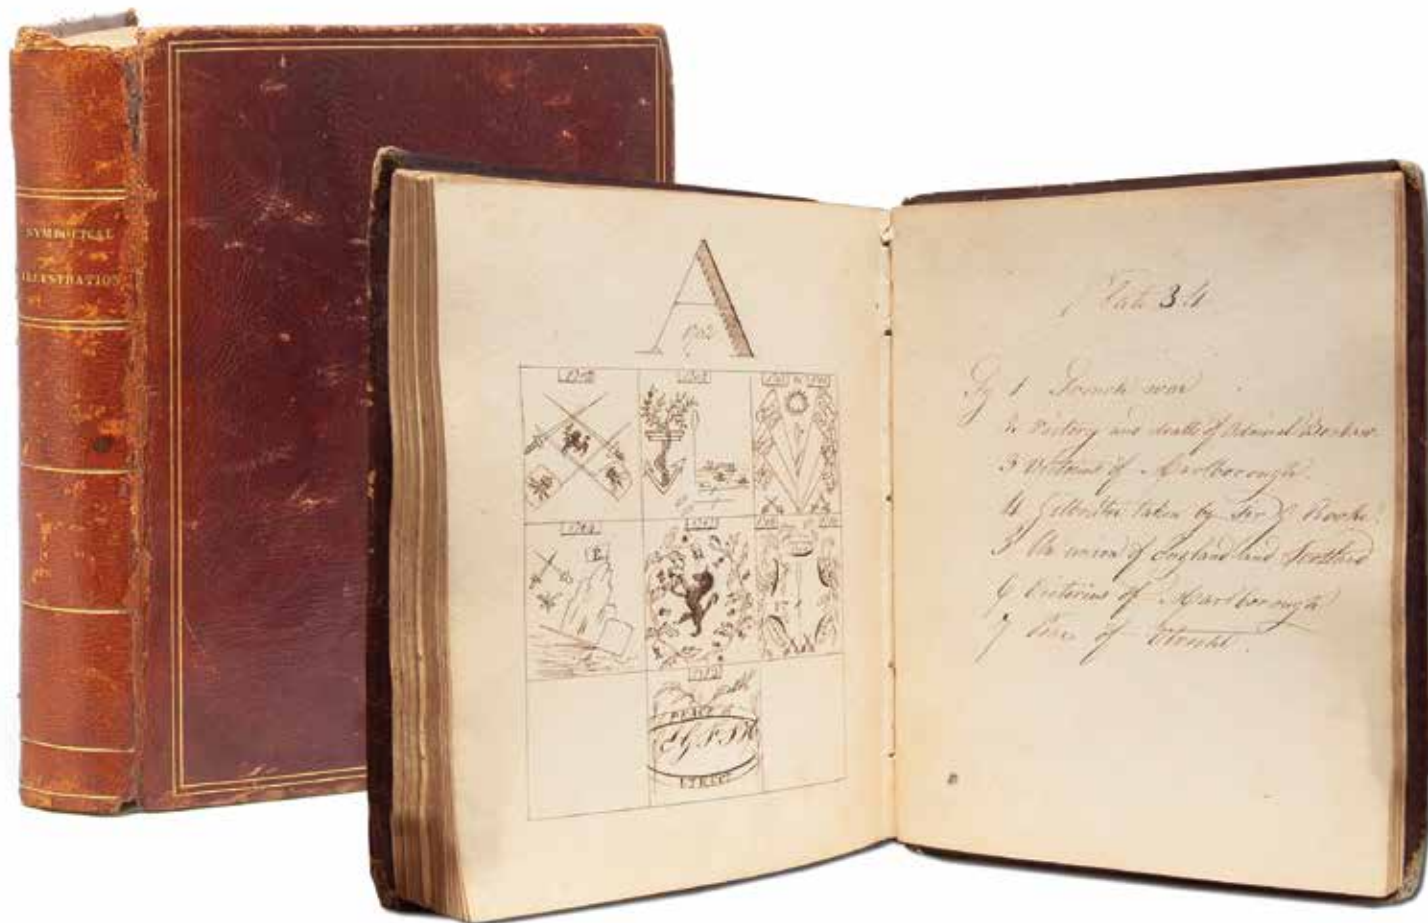 SYMBOLICAL
ILLUSTRATION
A
1702
1702
1704
1707
PEACE
Plate 34
Fig 1 French war
2 Victory and death of Admiral Benbow
3 Victories of Marlborough
4 Gibralter taken by Sir G Rooke
5 An union of England and Scotland
6 Victories of Marlborough
7 Peace of Utrecht